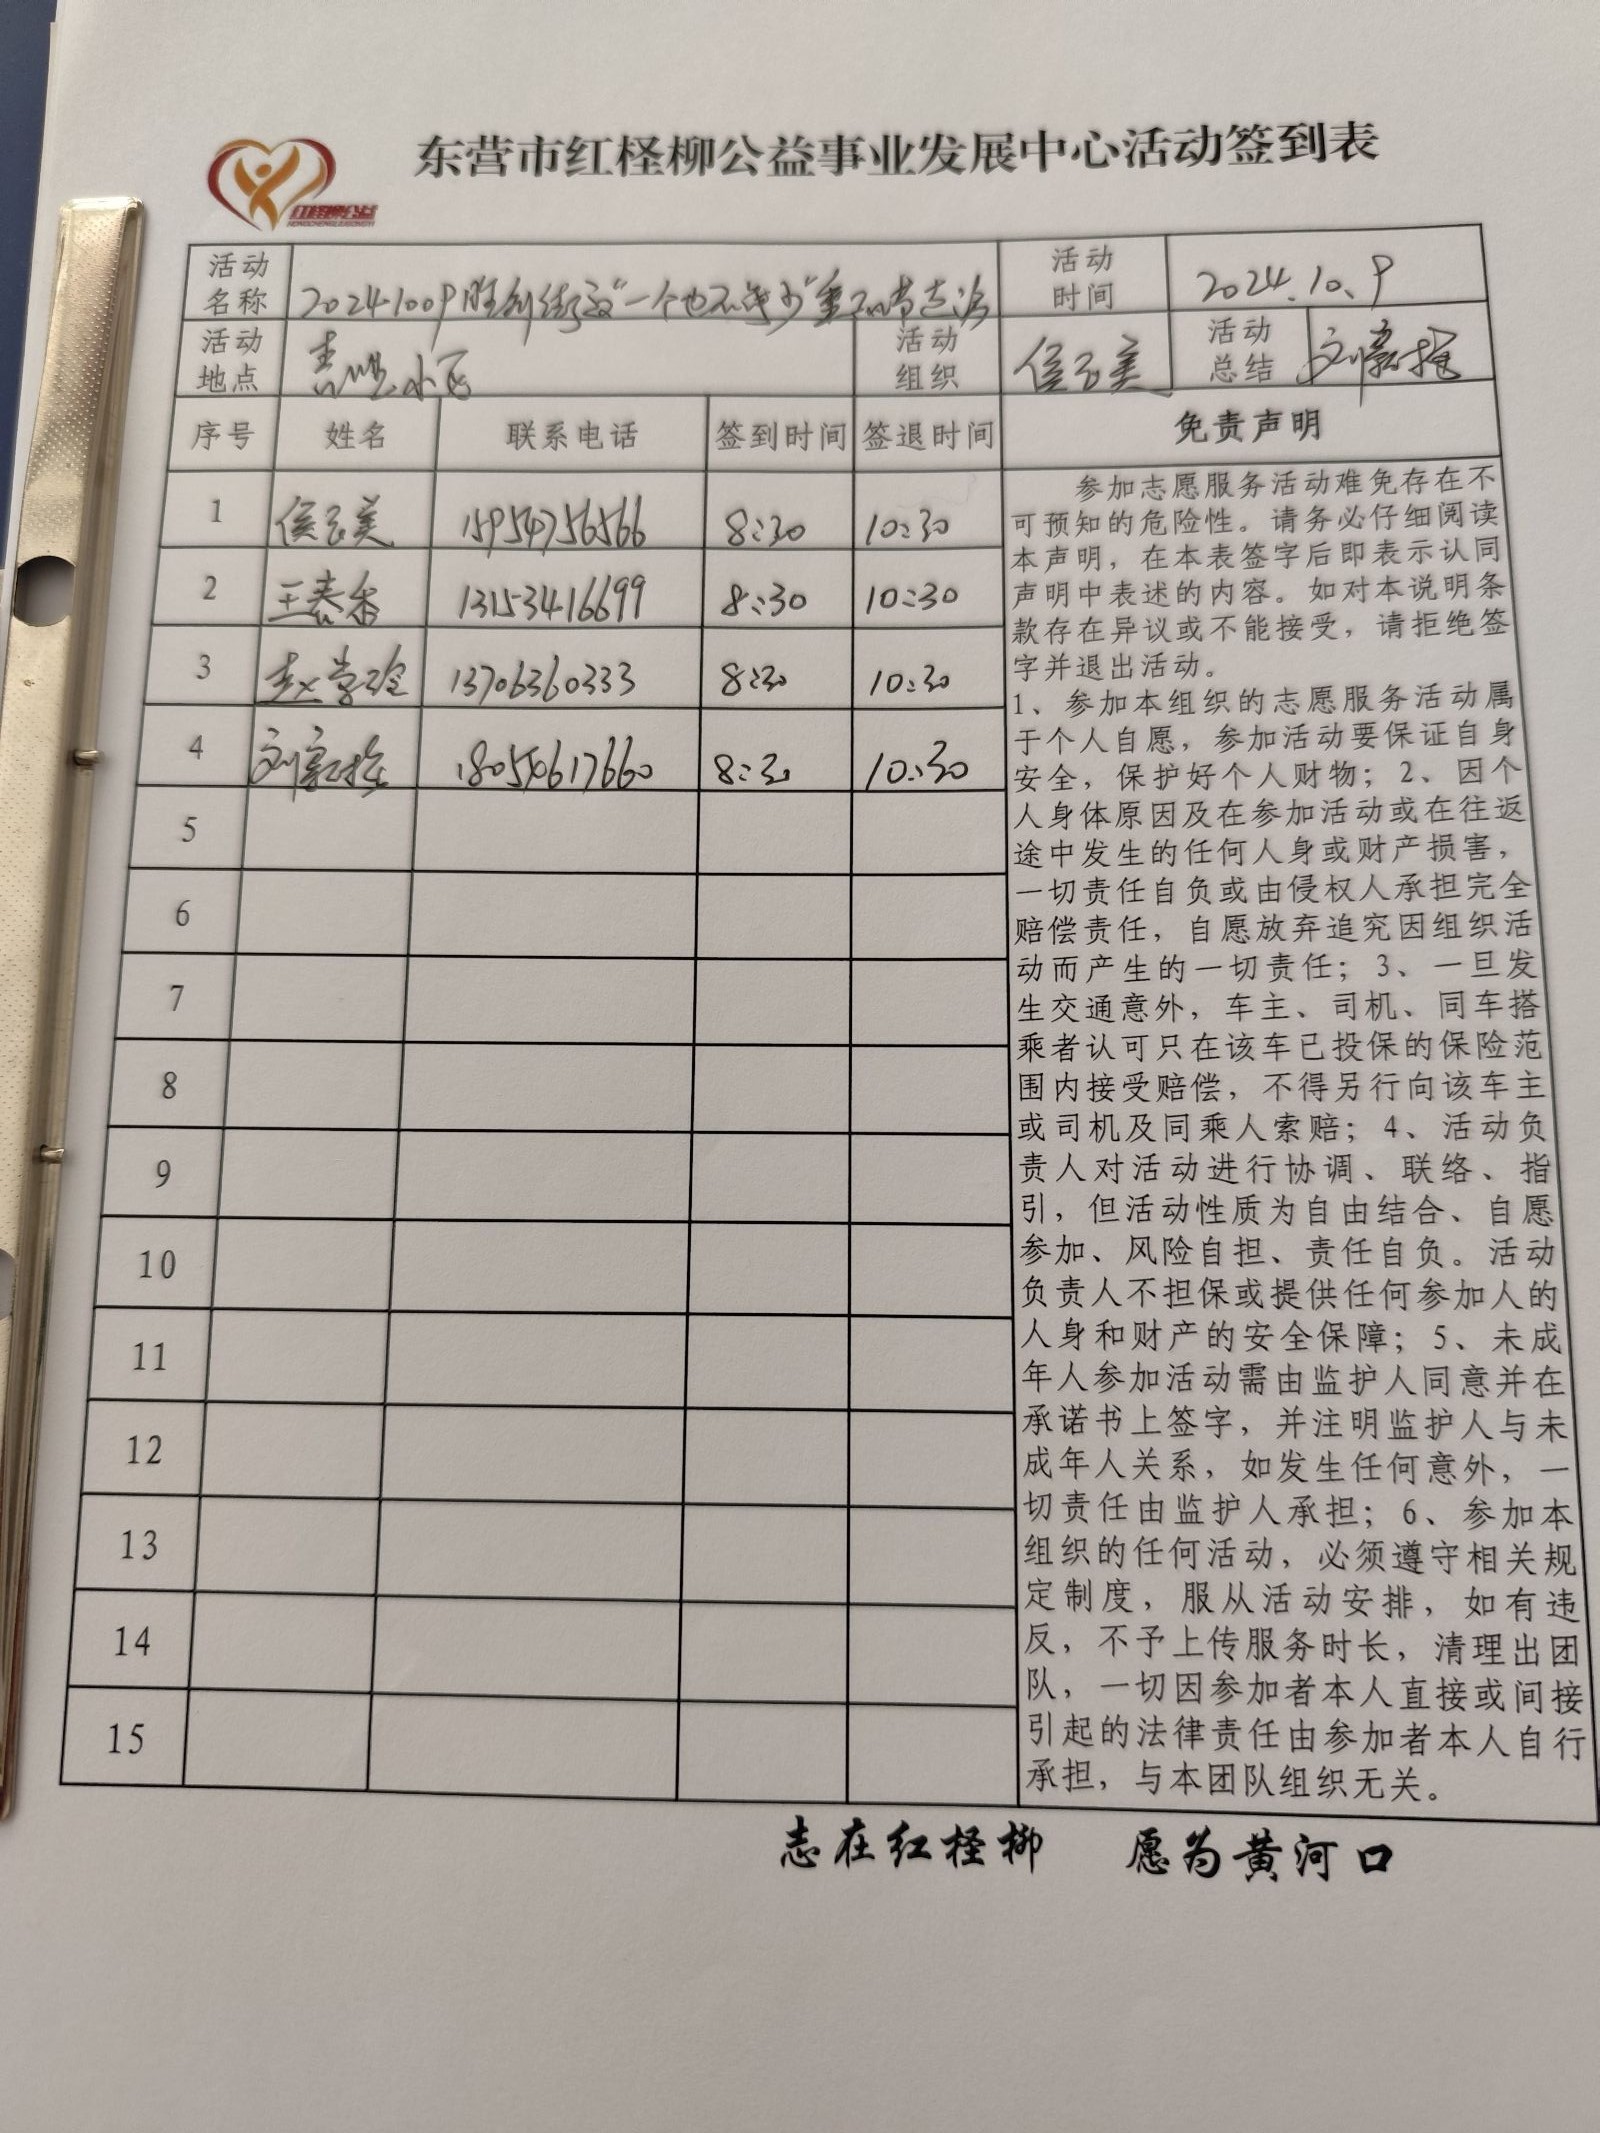 东营市红柽柳公益事业发展中心活动签到表
红柽柳公益
活动名称 20241009胜利街道“一个也不能少”重阳节走访 活动时间 2024.10.9
活动地点 小区 活动组织 侯玉美 活动总结 刘
序号 姓名 联系电话 签到时间 签退时间 免责声明
1 侯玉美 15954756566 8:30 10:30
2 王春香 13153416699 8:30 10:30
3 赵 13706360333 8:30 10:30
4 刘 18054617660 8:30 10:30
5
6
7
8
9
10
11
12
13
14
15
参加志愿服务活动难免存在不
可预知的危险性。请务必仔细阅读
本声明，在本表签字后即表示认同
声明中表述的内容。如对本说明条
款存在异议或不能接受，请拒绝签
字并退出活动。
1、参加本组织的志愿服务活动属
于个人自愿，参加活动要保证自身
安全，保护好个人财物；2、因个
人身体原因及在参加活动或在往返
途中发生的任何人身或财产损害，
一切责任自负或由侵权人承担完全
赔偿责任，自愿放弃追究因组织活
动而产生的一切责任；3、一旦发
生交通意外，车主、司机、同车搭
乘者认可只在该车已投保的保险范
围内接受赔偿，不得另行向该车主
或司机及同乘人索赔；4、活动负
责人对活动进行协调、联络、指
引，但活动性质为自由结合、自愿
参加、风险自担、责任自负。活动
负责人不担保或提供任何参加人的
人身和财产的安全保障；5、未成
年人参加活动需由监护人同意并在
承诺书上签字，并注明监护人与未
成年人关系，如发生任何意外，一
切责任由监护人承担；6、参加本
组织的任何活动，必须遵守相关规
定制度，服从活动安排，如有违
反，不予上传服务时长，清理出团
队，一切因参加者本人直接或间接
引起的法律责任由参加者本人自行
承担，与本团队组织无关。
志在红柽柳 愿为黄河口